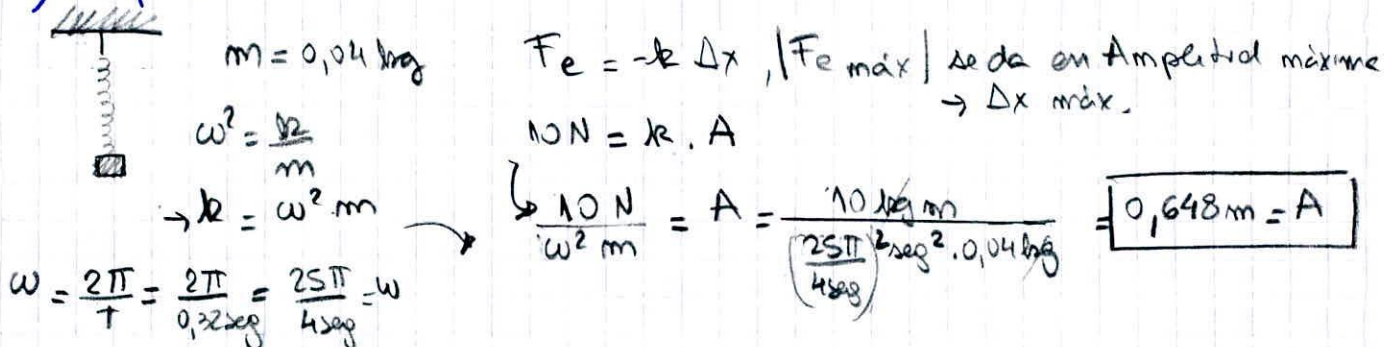 m = 0,04 kg
ω² = k/m
→ k = ω² m
ω = 2π/T = 2π/0,32seg = 25π/4seg = ω
Fe = -k Δx , |Fe máx| se da en Amplitud máxima
→ Δx máx.
10N = k . A
10 N/(ω² m) = A = 10 kg m/((25π/4seg)² seg² . 0,04 kg) = 0,648 m = A